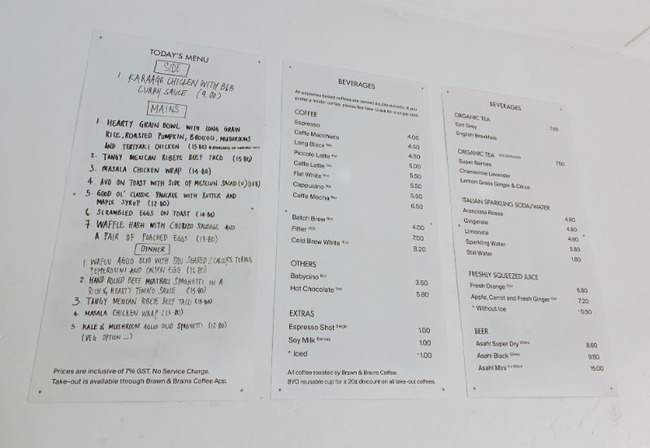 TODAY'S MENU
SIDE
1. KARAAGE CHICKEN WITH B&B
CURRY SAUCE (9.80)
MAINS
1. HEARTY GRAIN BOWL WITH LONG GRAIN
RICE, ROASTED PUMPKIN, BROCOLI, MUSHROOMS
AND TERIYAKI CHICKEN (15.80)
2. TANGY MEXICAN RIBEYE BEEF TACO (15.80)
3. MASALA CHICKEN WRAP (14.80)
4. AVO ON TOAST WITH SIDE OF MESCLUN SALAD (V)
5. GOOD OL' CLASSIC PANCAKE WITH BUTTER AND
MAPLE SYRUP (12.80)
6. SCRAMBLED EGGS ON TOAST
7. WAFFLE HASH WITH CHORIZO SAUSAGE AND
A PAIR OF POACHED EGGS (17.80)
DINNER
1. AGLIO OLIO WITH PAN SEARED SCALLOPS,
AND ONSEN EGG
2. HAND ROLLED BEEF MEATBALL SPAGHETTI IN A
RICH & HEARTY TOMATO SAUCE (15.80)
3. TANGY MEXICAN RIBEYE BEEF TACO (15.80)
4. MASALA CHICKEN WRAP
5. KALE & MUSHROOM AGLIO OLIO SPAGHETTI (12.80)
(VEG OPTION
Prices are inclusive of 7% GST. No Service Charge.
Take-out is available through Brawn & Brains Coffee App.
BEVERAGES
All espresso based coffees are served double-shots. If you
prefer a weaker coffee, please feel free to ask for a single shot.
COFFEE
Espresso
Caffe Macchiato 4.00
Long Black 4.50
Piccolo Latte 4.50
Caffe Latte 5.00
Flat White 5.50
Cappucino 5.50
Caffe Mocha 5.50
6.50
Batch Brew
Filter 4.00
Cold Brew White 7.00
8.20
OTHERS
Babycino
Hot Chocolate 3.50
5.80
EXTRAS
Espresso Shot Single 1.00
Soy Milk 1.00
* Iced +1.00
All coffee roasted by Brawn & Brains Coffee.
BYO reusable cup for a 20¢ discount on all take-out coffees.
BEVERAGES
ORGANIC TEA
Earl Grey 7.50
English Breakfast
ORGANIC TEA
Super Berries 7.50
Chamomile Lavender
Lemon Grass Ginger & Citrus
ITALIAN SPARKLING SODA/WATER
Aranciata Rossa
Gingerale 4.80
Limonata 4.80
Sparkling Water 4.80
Still Water 5.80
1.80
FRESHLY SQUEEZED JUICE
Fresh Orange
Apple, Carrot and Fresh Ginger 6.80
* Without Ice 7.20
+0.50
BEER
Asahi Super Dry 8.60
Asahi Black 9.80
Asahi Mini 15.00